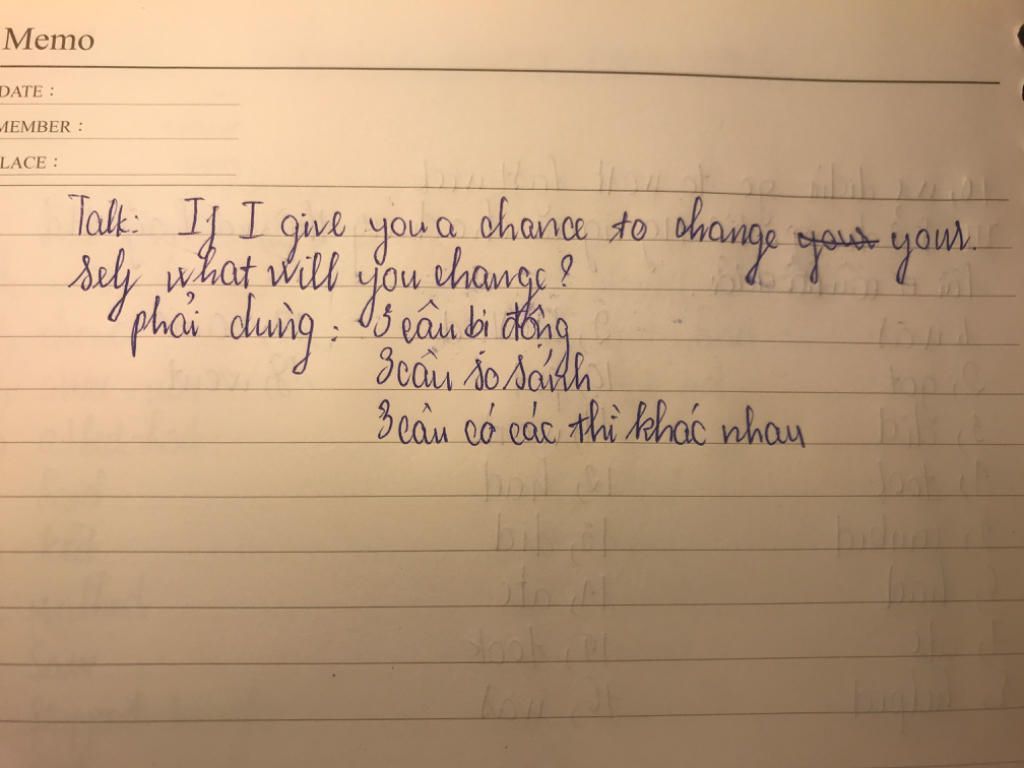 Memo
DATE :
MEMBER :
LACE :
Talk: If I give you a chance to change your your.
self what will you change?
phải dùng : 3 câu bị động
3 câu so sánh
3 câu có các thì khác nhau